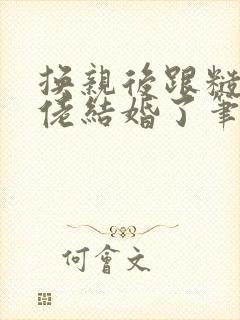 換親後跟糙
佬結婚了筆
何會文